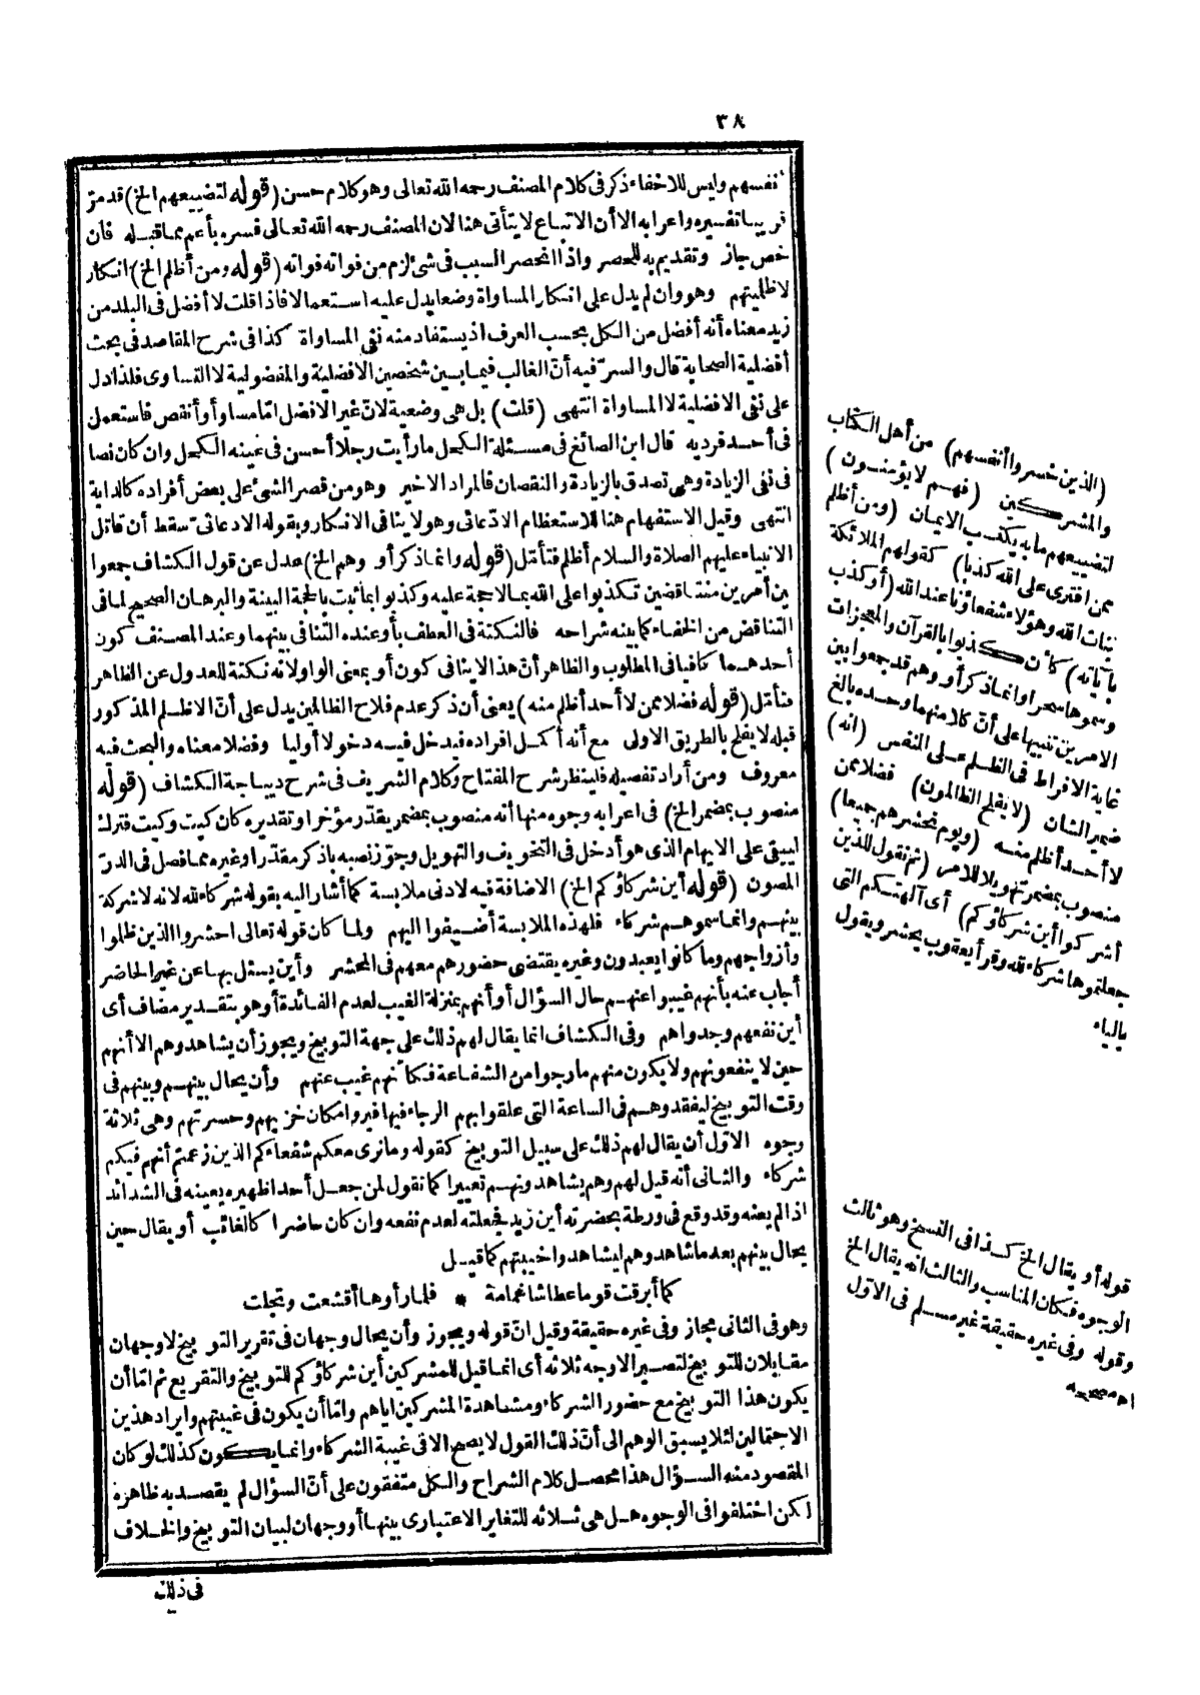 ٣٨
أنفسهم وليس للاخفاء ذكر فى كلام المصنف رحمه الله تعالى وهو كلام حسن (قوله لتضييعهم الخ) قد مرّ
قريبا تفسيره واعرابه الا أن الاتباع لا يتأتى هنا لان المصنف رحمه الله تعالى فسره بأعم مما قبله فان
خص جاز وتقديم به للحصر واذا انحصر السبب فى شئ لزم من فواته فواته (قوله ومن أظلم الخ) انكار
لاظلميتهم وهو وان لم يدل على انكار المساواة وضعا يدل عليه استعمالا فاذا قلت لا أفضل فى البلد من
زيد معناه أنه أفضل من الكل بحسب العرف اذ يستفاد منه نفى المساواة كذا فى شرح المقاصد فى بحث
أفضلية الصحابة قال والسرّ فيه أنّ الغالب فيما بين شخصين الافضلية والمفضولية لا التساوى فلذا دل
على نفى الافضلية لا المساواة انتهى (قلت) بل هى وضعية لانّ غير الافضل امّا مساو أو أنقص فاستعمل
فى أحد فرديه قال ابن الصائغ فى مسئلة الكحل ما رأيت رجلا أحسن فى عينه الكحل وان كان نصا
فى نفى الزيادة وهى تصدق بالزيادة والنقصان فالمراد الاخير وهو من قصر الشئ على بعض أفراده كالدابة
انتهى وقيل الاستفهام هنا للاستعظام الادّعائى وهو لا ينافى الانكار وبقوله الادعائى سقط أن قاتل
الانبياء عليهم الصلاة والسلام أظلم فتأمّل (قوله وانما ذكر أو وهم الخ) عدل عن قول الكشاف جمعوا
بين أمرين متناقضين تكذبوا على الله بما لا حجة عليه وكذبوا بما ثبت بالحجة البينة والبرهان الصحيح لما فى
التناقض من الخفاء كما بينه شراحه فالنكتة فى العطف بأو عنده التنافى بينهما وعند المصنف كون
أحدهما كافيا فى المطلوب والظاهر أنّ هذا لا ينافى كون أو بمعنى الواو لانه نكتة للعدول عن الظاهر
فتأمّل (قوله فضلا ممن لا أحد أظلم منه) يعنى أن ذكر عدم فلاح الظالمين يدل على أنّ الاظلم المذكور
قبله لا يفلح بالطريق الاولى مع أنه أكمل افراده فيدخل فيه دخولا أوليا وفضلا معناه والبحث فيه
معروف ومن أراد تفصيله فلينظر شرح المفتاح وكلام الشريف فى شرح ديباجة الكشاف (قوله
منصوب بمضمر الخ) فى اعرابه وجوه منها أنه منصوب بمضمر يقدّر مؤخرا وتقديره كان كيت وكيت فترك
ليبقى على الابهام الذى هو أدخل فى التخويف والتهويل وجوّز نصبه باذكر مقدّرا وغيره مما فصل فى الدرّ
المصون (قوله أين شركاؤكم الخ) الاضافة فيه لادنى ملابسة كما أشار اليه بقوله شركاء لله لانه لا شركة
بينهم وانما سموهم شركاء فلهذه الملابسة أضيفوا اليهم ولما كان قوله تعالى احشروا الذين ظلموا
وأزواجهم وما كانوا يعبدون وغيره يقتضى حضورهم معهم فى المحشر وأين يسئل بها عن غير الحاضر
أجاب عنه بأنهم غيبوا عنهم حال السؤال أو أنهم بمنزلة الغيب لعدم الفائدة أو هو بتقدير مضاف أى
أين نفعهم وجدواهم وفى الكشاف انما يقال لهم ذلك على جهة التوبيخ ويجوز أن يشاهدوهم الا أنهم
حين لا ينفعونهم ولا يكون منهم ما رجوا من الشفاعة فكأنهم غيب عنهم وأن يحال بينهم وبينهم فى
وقت التوبيخ ليفقدوهم فى الساعة التى علقوا بهم الرجاء فيها فيروا مكان خزيهم وحسرتهم وهى ثلاثة
وجوه الاوّل أن يقال لهم ذلك على سبيل التوبيخ كقوله وما نرى معكم شفعاءكم الذين زعمتم أنهم فيكم
شركاء والثانى أنه قيل لهم وهم يشاهدونهم تعييرا كما نقول لمن جعل أحدا ظهيره يعينه فى الشدائد
اذا لم يعنه وقد وقع فى ورطة بحضرته أين زيد فجعلته لعدم نفعه وان كان حاضرا كالغائب أو يقال حين
يحال بينهم بعد ما شاهدوهم ليشاهدوا خيبتهم كما قيل
كما أبرقت قوما عطاشا غمامة * فلما رأوها أقشعت وتجلت
وهو فى الثانى مجاز وفى غيره حقيقة وقيل انّ قوله ويجوز وأن يحال وجهان فى تقرير التوبيخ لا وجهان
مقابلان للتوبيخ لتصير الاوجه ثلاثة أى انما قيل للمشركين أين شركاؤكم للتوبيخ والتقريع ثم امّا أن
يكون هذا التوبيخ مع حضور الشركاء ومشاهدة المشركين اياهم وامّا أن يكون فى غيبتهم وايراد هذين
الاحتمالين لئلا يسبق الوهم الى أنّ ذلك القول لا يصح الا فى غيبة الشركاء وانما يكون كذلك لو كان
المقصود منه السؤال هذا محصل كلام الشراح والكل متفقون على أنّ السؤال لم يقصد به ظاهره
لكن اختلفوا فى الوجوه هل هى ثلاثة للتغاير الاعتبارى بينها أو وجهان لبيان التوبيخ والخلاف
فى ذلك
(الذين خسروا أنفسهم) من أهل الكتاب
والمشركين (فهم لا يؤمنون)
لتضييعهم ما به يكتسب الايمان (ومن أظلم
ممن افترى على الله كذبا) كقولهم الملائكة
بنات الله وهؤلاء شفعاؤنا عند الله (أو كذب
بآياته) كأن كذبوا بالقرآن والمعجزات
وسموها سحرا وانما ذكر أو وهم قد جمعوا بين
الامرين تنبيها على أنّ كلا منهما وحده بالغ
غاية الافراط فى الظلم على النفس (انه)
ضمير الشان (لا يفلح الظالمون) فضلا ممن
لا أحد أظلم منه (ويوم نحشرهم جميعا)
منصوب بمضمر تهويلا للامر (ثم نقول للذين
أشركوا أين شركاؤكم) أى آلهتكم التى
جعلتموها شركاء لله وقرأ يعقوب يحشر ويقول
بالياء
قوله أو يقال الخ كذا فى النسخ وهو ثالث
الوجوه فكان المناسب والثالث أنه يقال الخ
وقوله وفى غيره حقيقة غير مسلم فى الاوّل
اه مصححه